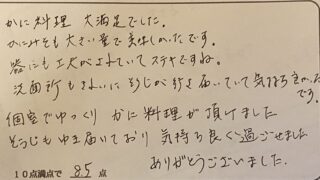 かに料理 大満足でした。
かにみそも大きい量で美味しかったです。
器にも工夫がされていてステキですね。
洗面所もきれいにそうじが行き届いていて気持ち良かったです。
個室でゆっくり かに料理が頂けました
そうじもゆき届いており 気持ち良く過ごせました
ありがとうございました.
10点満点で 85 点